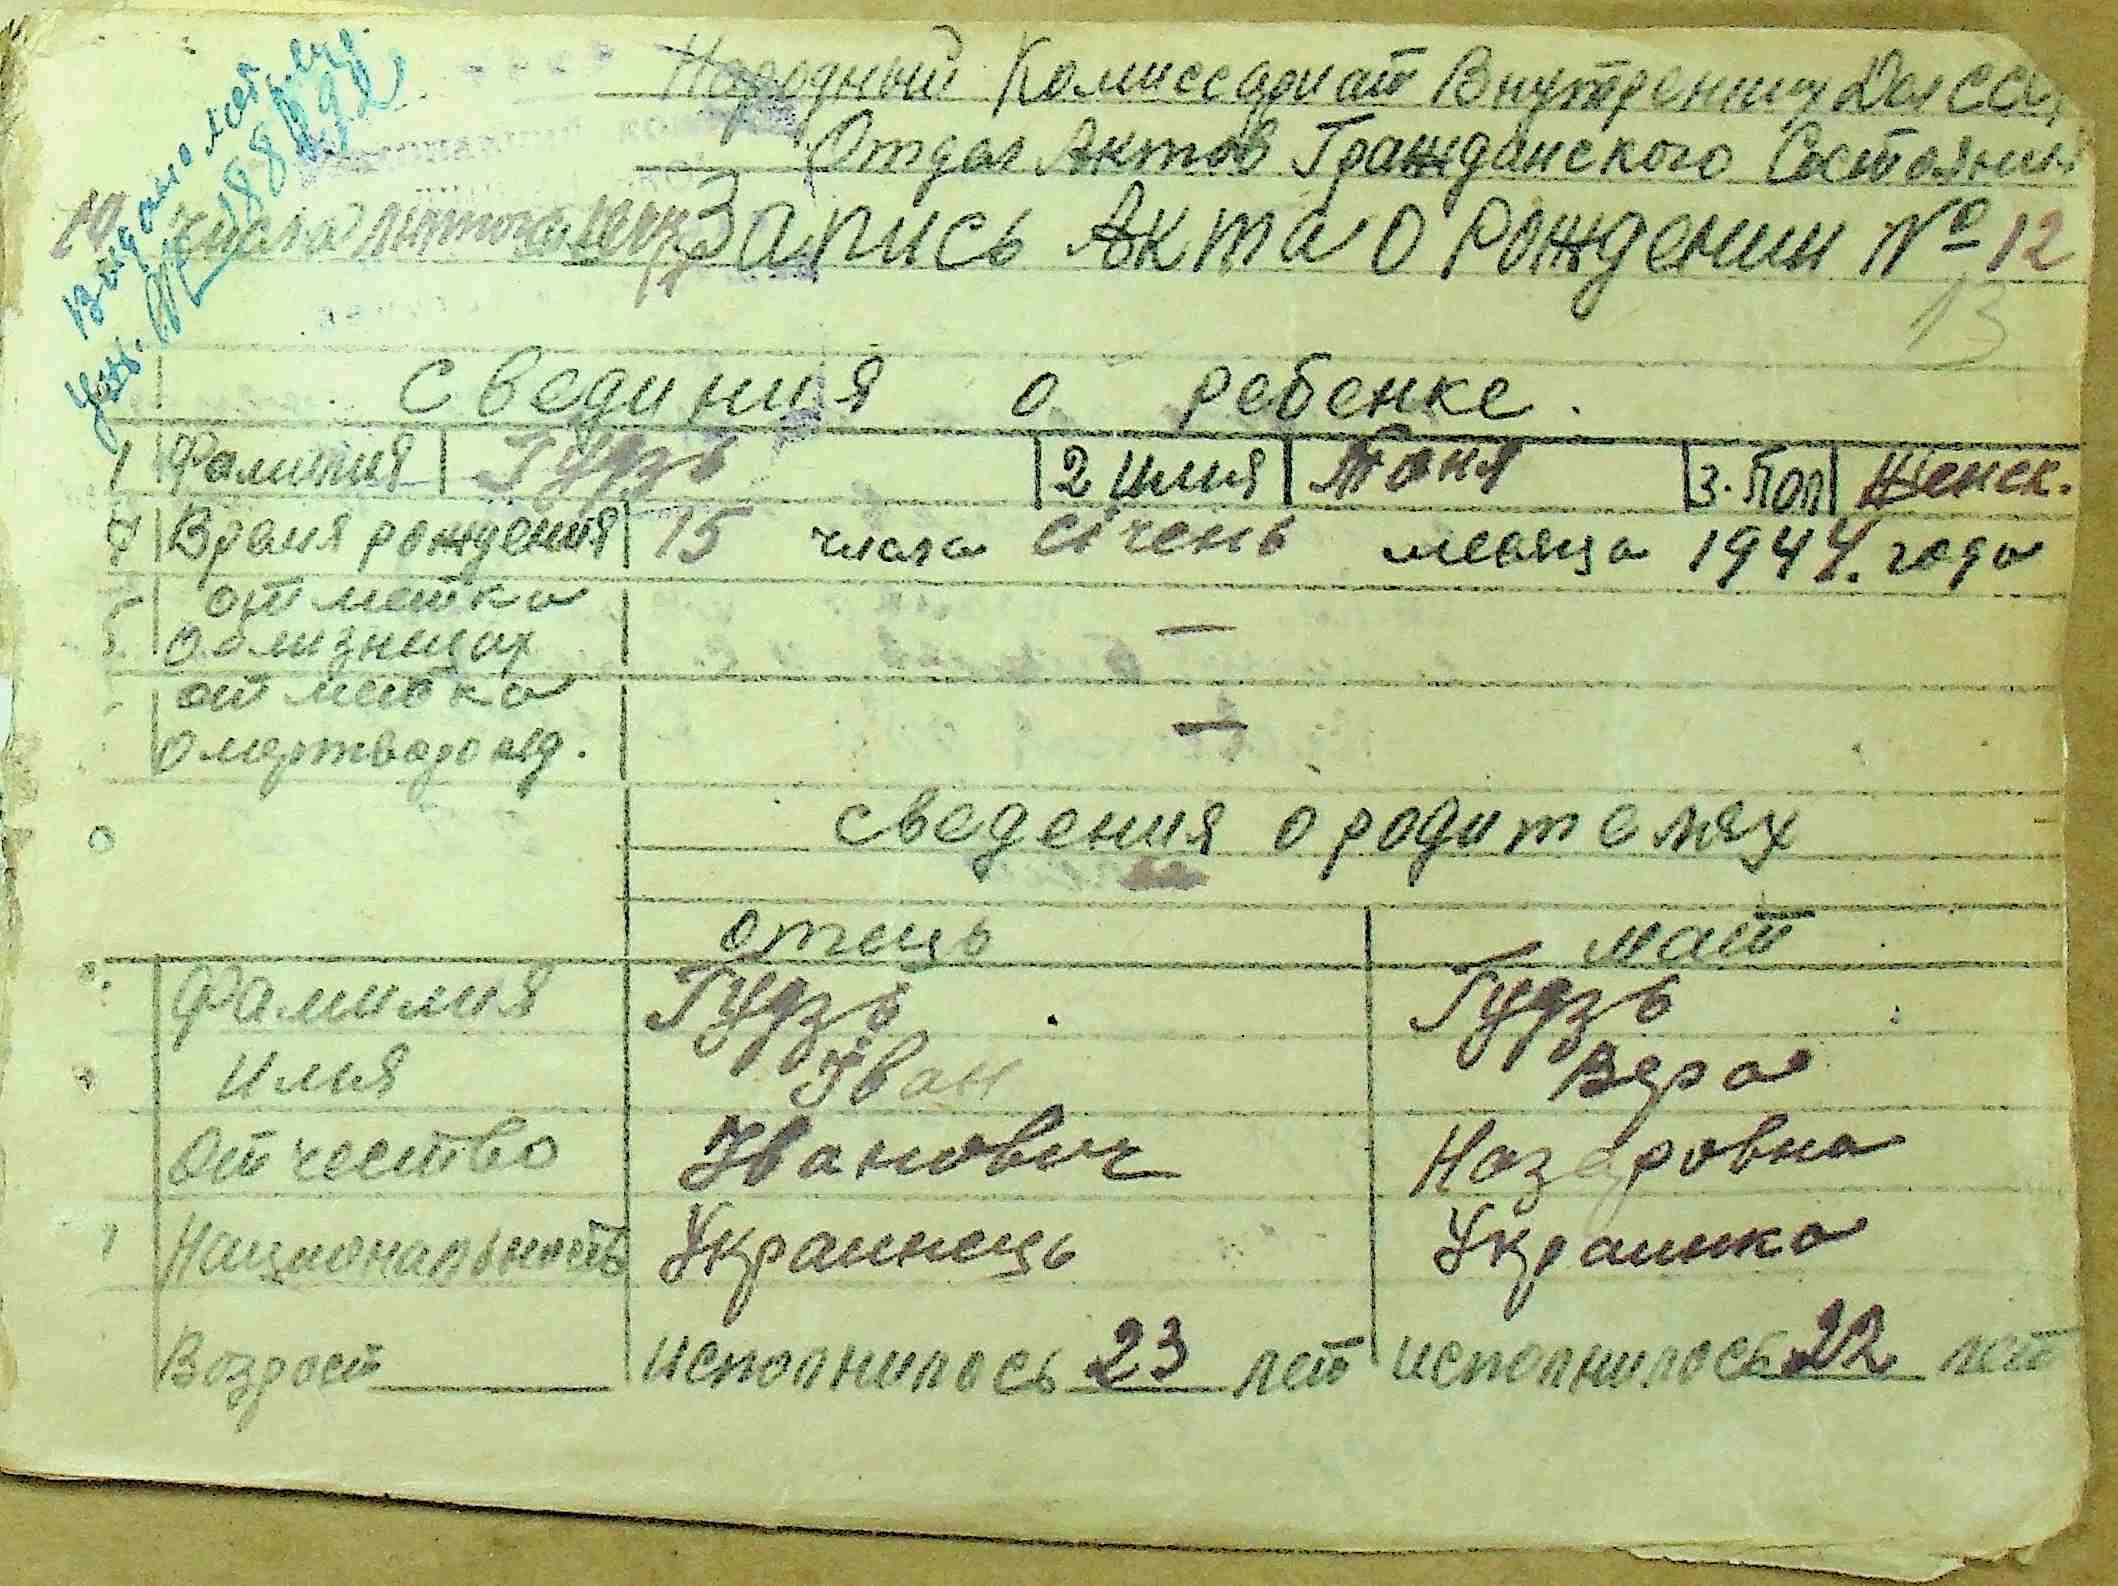 Народный Комиссариат Внутрених Дел ССС
Отдел Актов Гражданского Состояния
числа лютого 1944 Запись Акта о Рождении № 12
13
свединия о ребенке.
1 Фамилия Гудзь 2 Имия Таня 3. Пол Женск.
4 Время рождения 15 числа січень месяца 1944. года
5 отметка
о близнецах —
отметка
о мертворожд. —
сведения о родителях
отець мать
Фамилия Гудзь Гудзь
Имья Іван Вера
Отчество Іванович Назаровна
Национальность Украинець Украинка
Возраст исполнилось 23 лет исполнилось 22 лет